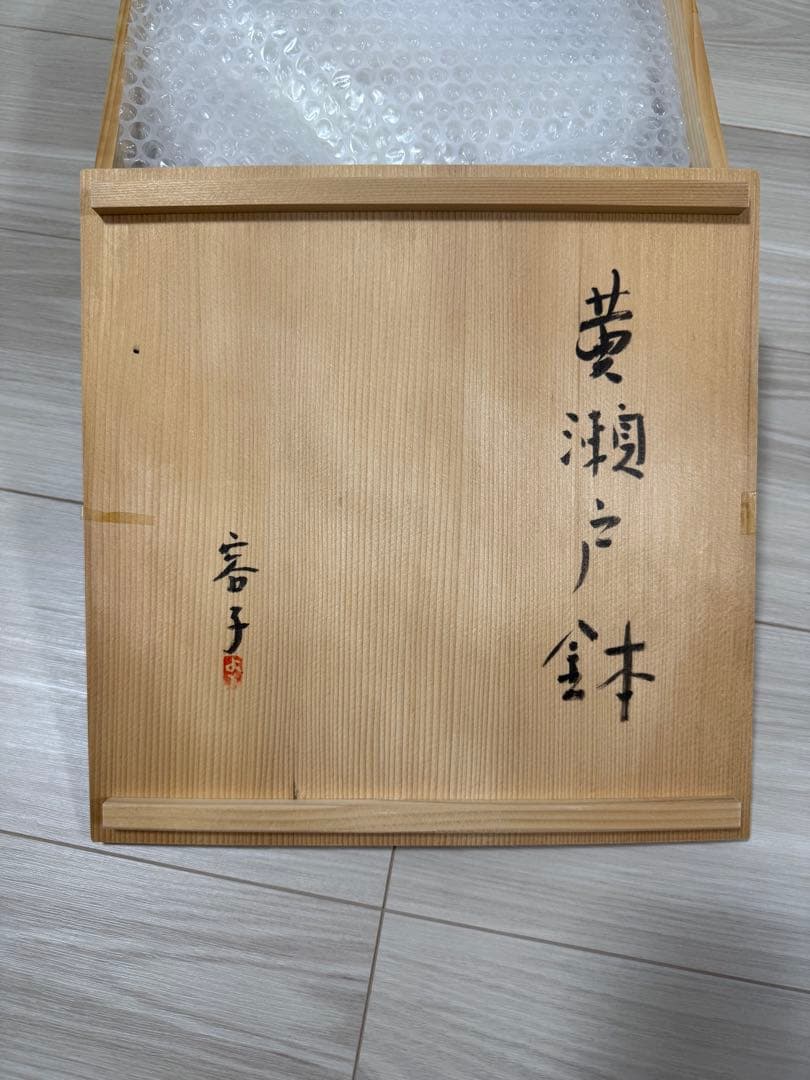 黄瀬戸鉢
容子
よ